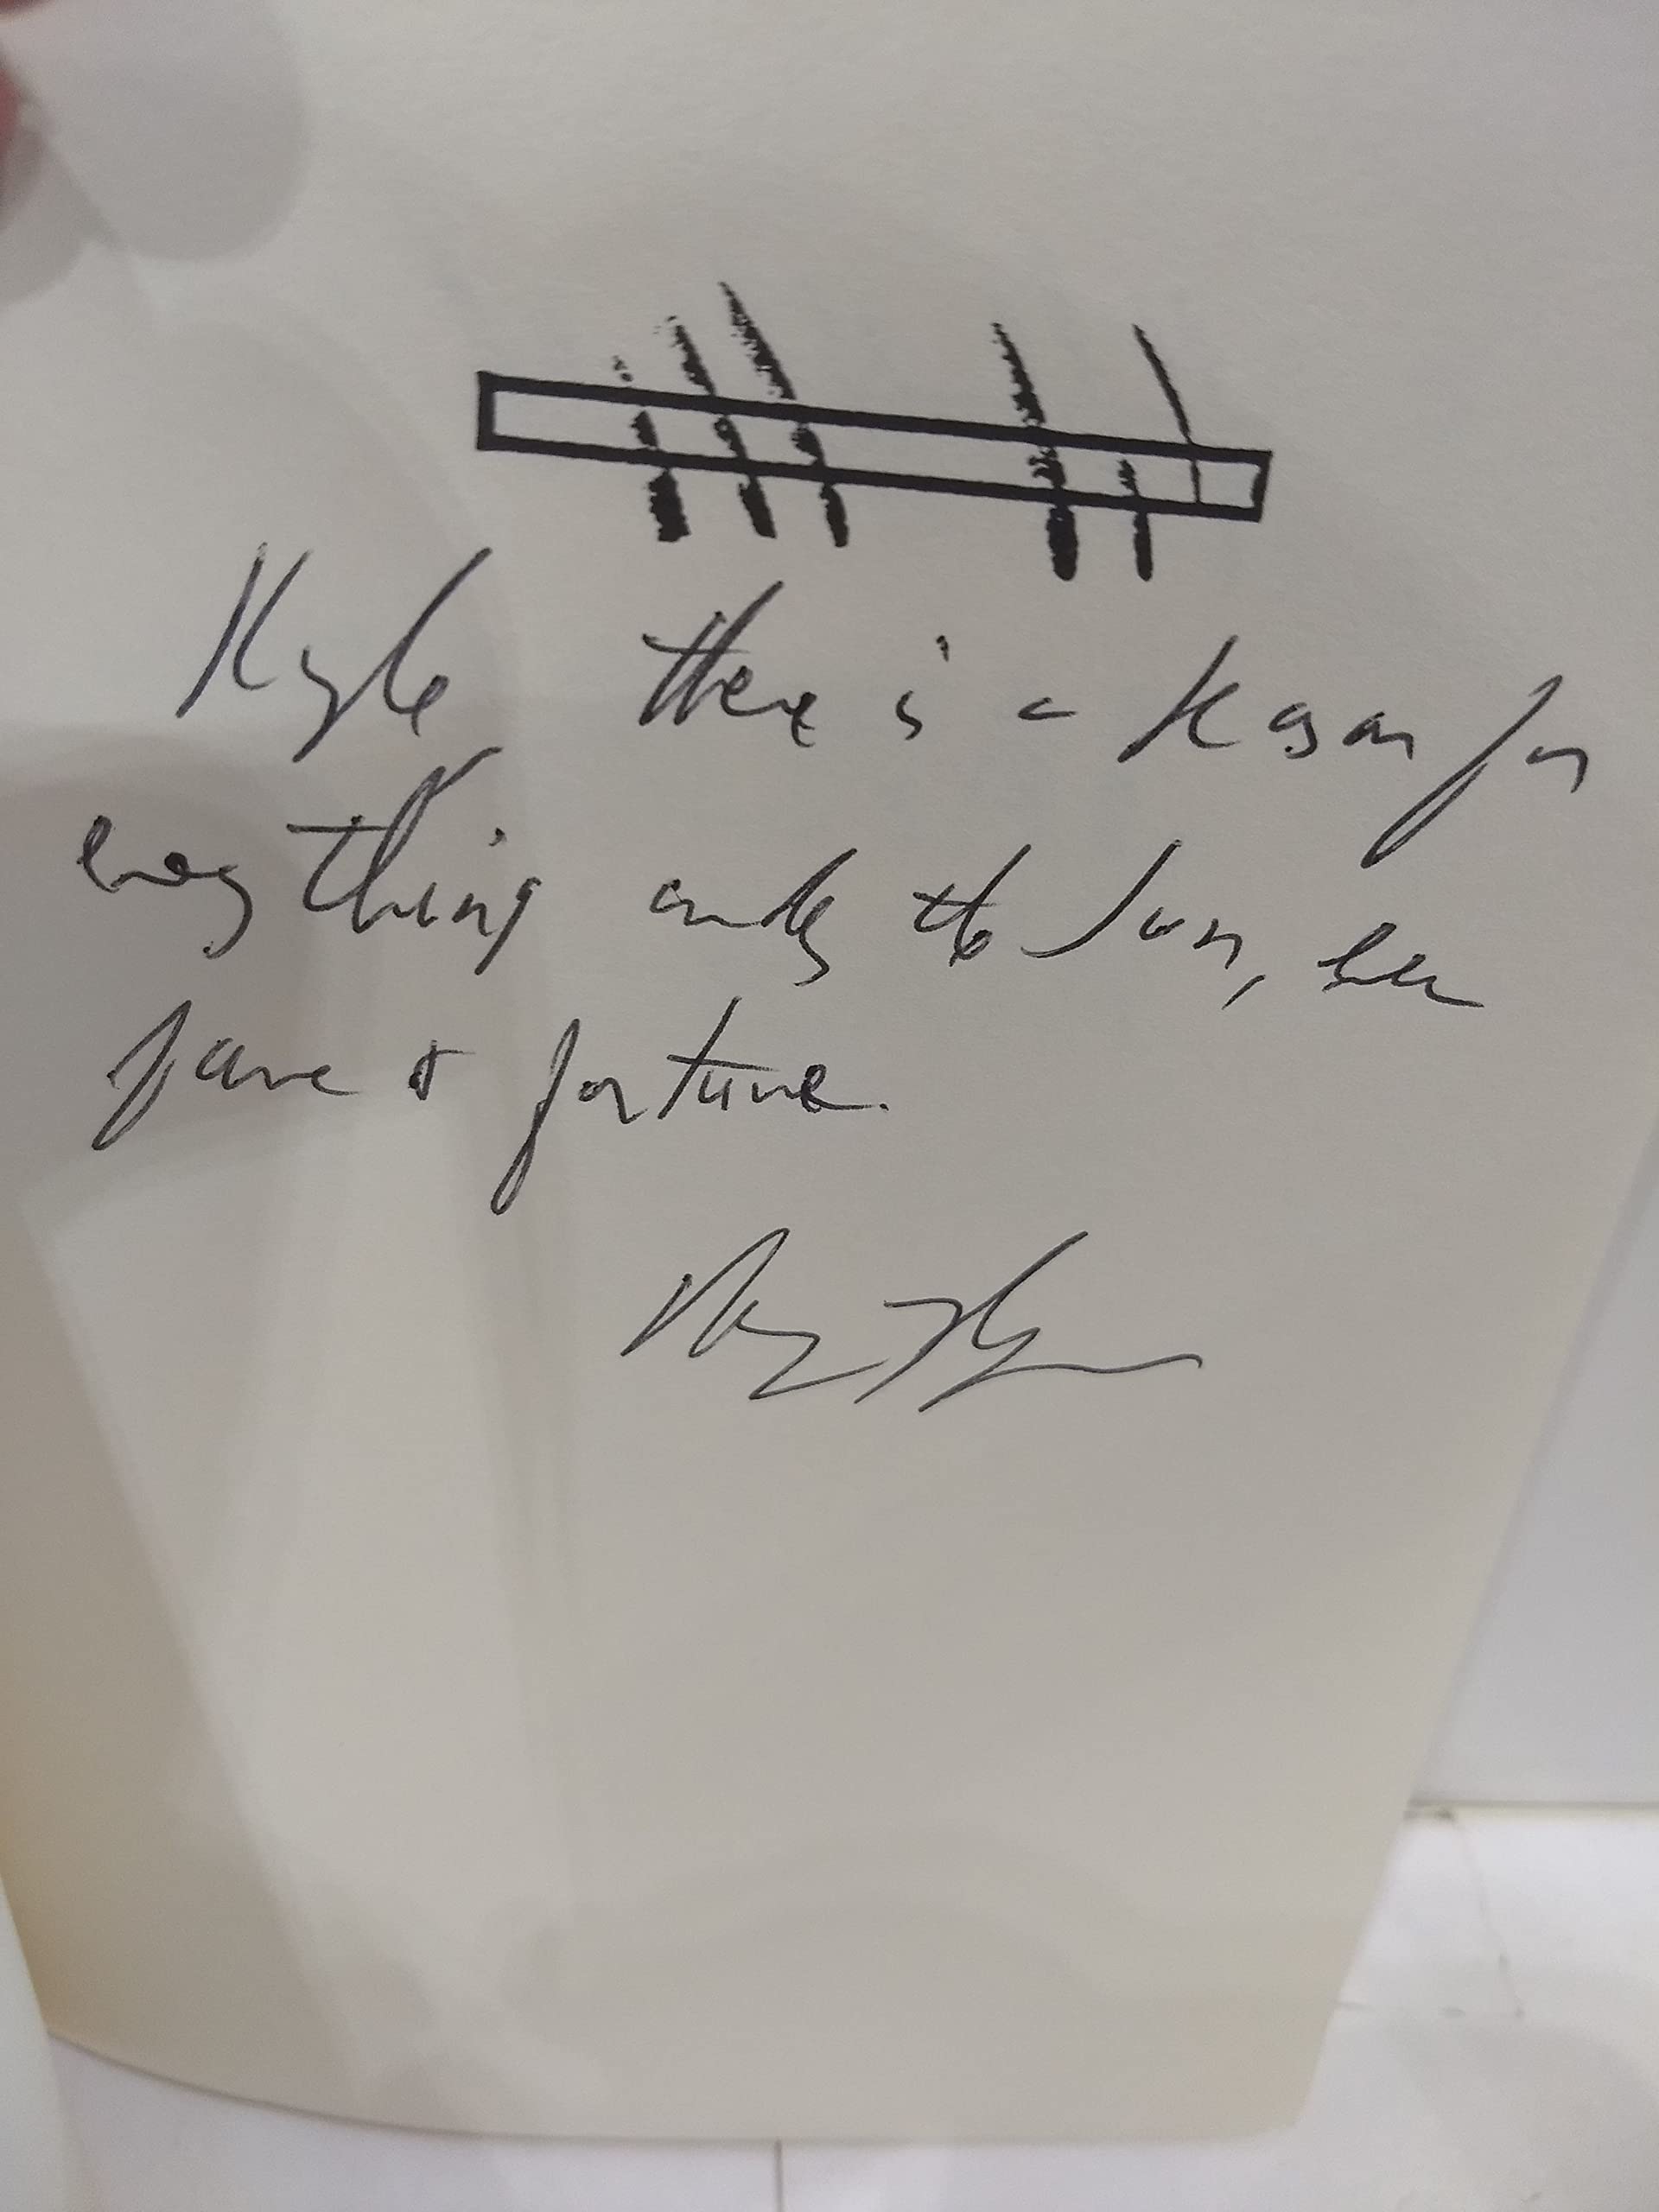 Kyle there is a reason for
everything under the sun, even
fame & fortune.